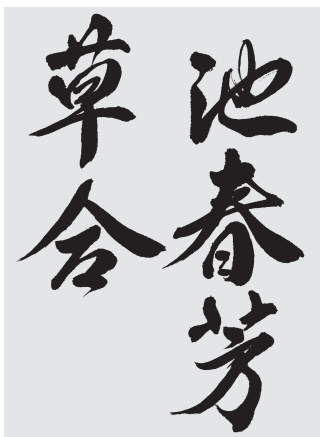 池春芳
草合